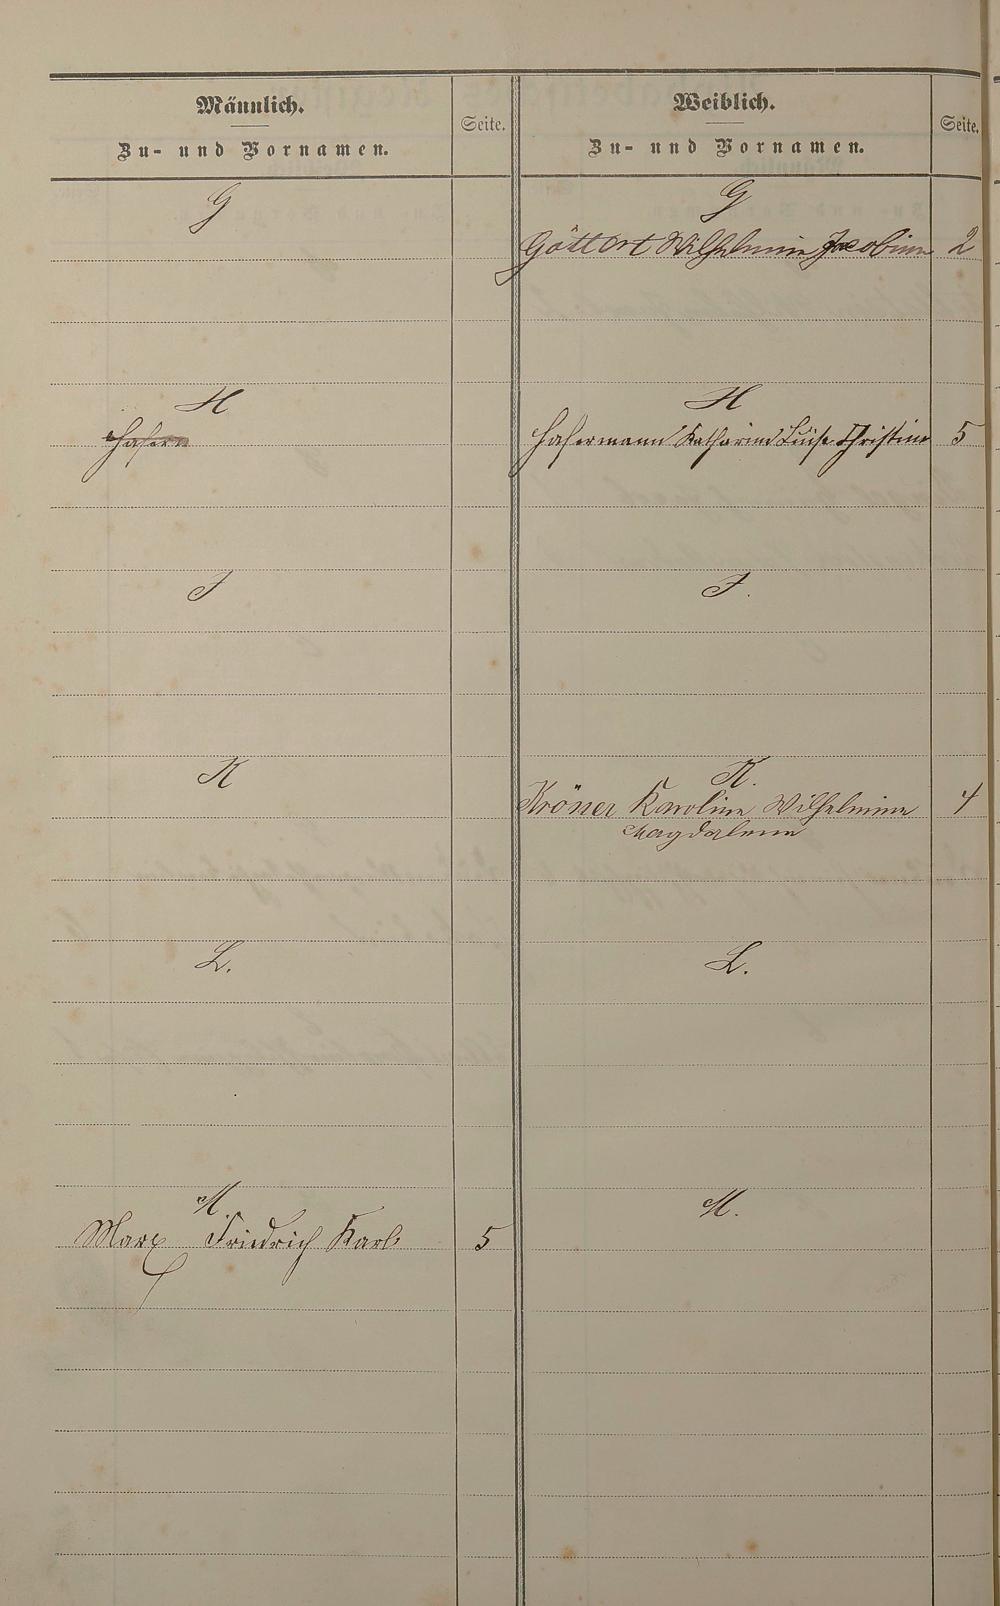 Männlich.
Zu- und Vornamen.
Seite.
Weiblich.
Zu- und Vornamen.
Seite.
G
G
Göttert Wilhelmine Jacobine 2
H
H
Hafermann Katharine Luise Christine 5
J
J.
K
K.
Kröner Karoline Wilhelmine 4
Magdalena
L.
L.
M.
M.
Marx Friedrich Karl 5